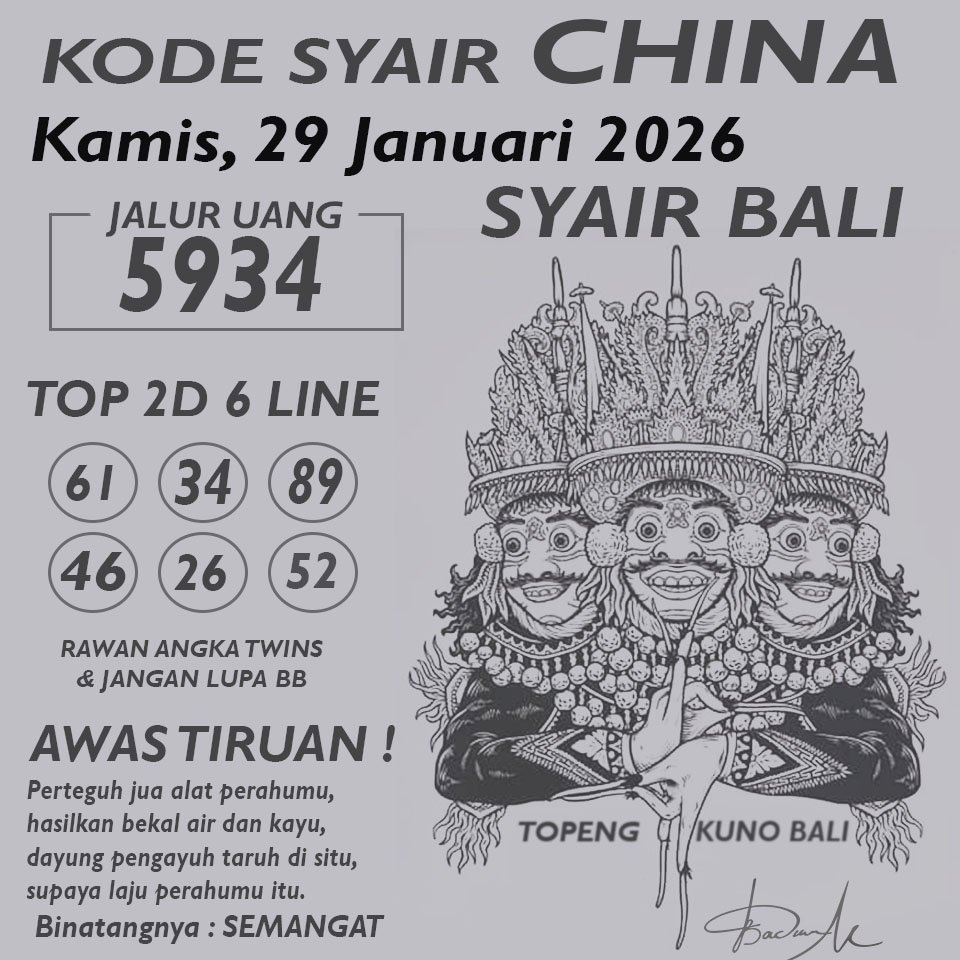 KODE SYAIR CHINA
Kamis, 29 Januari 2026
SYAIR BALI
JALUR UANG
5934
TOP 2D 6 LINE
61 34 89
46 26 52
RAWAN ANGKA TWINS
& JANGAN LUPA BB
AWAS TIRUAN !
Perteguh jua alat perahumu,
hasilkan bekal air dan kayu,
dayung pengayuh taruh di situ,
supaya laju perahumu itu.
Binatangnya : SEMANGAT
TOPENG KUNO BALI